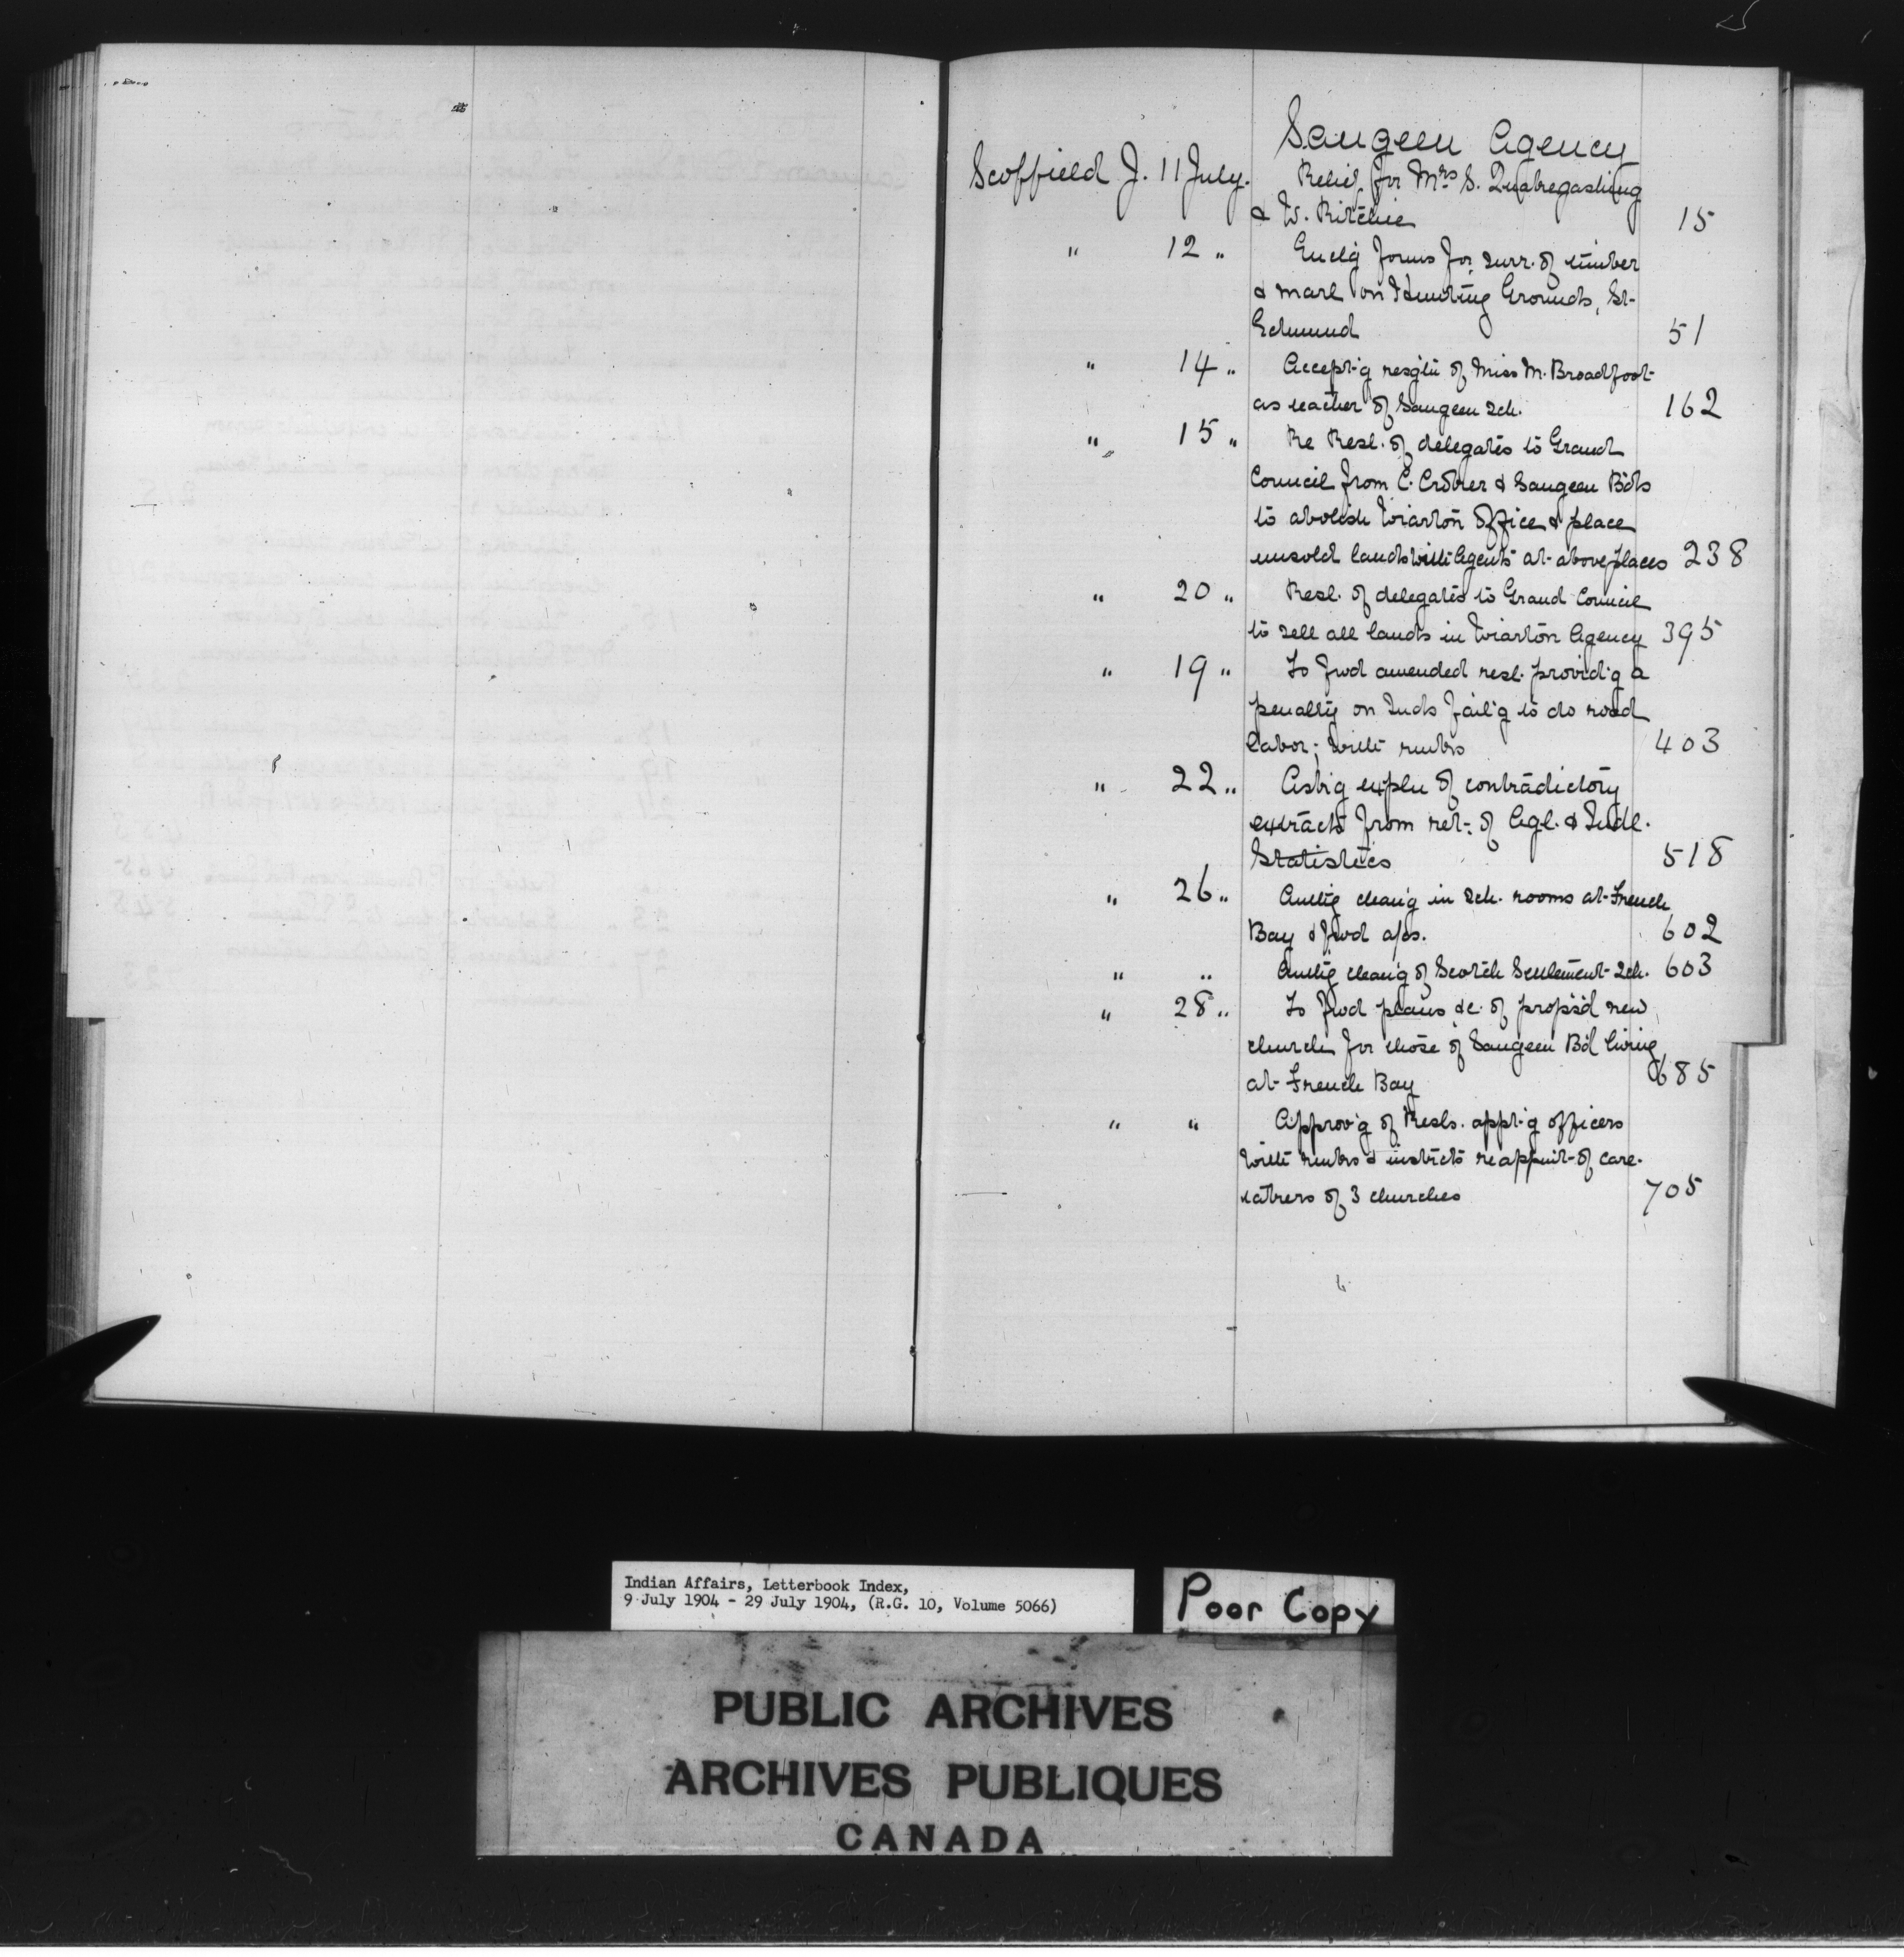 Saugeen Agency
Scoffield J. 11 July. Relief for Mrs S.
& W. Ritchie 15
" 12 " Enclg forms for surr. of timber
& marl on Hunting Grounds, St-
Edmund 51
" 14 " Accept-g resgtn of Miss M. Broadfoot-
as teacher of Saugeen Sch. 162
" 15 " Re Resl. of delegates to Grand
Council from C. Croker & Saugeen Bds
to abolish Wiarton Office & place
unsold lands with Agents at above places 238
" 20 " Resl. of delegates to Grand Council
to sell all lands in Wiarton Agency 395
" 19 " To fwd amended resl. provid'g a
penalty on Inds fail'g to do road
labor; with rmks 403
" 22 " Ask'g expln of contradictory
extracts from ret-: of Agl. & Indl.
Statistics 518
" 26 " Authg clean'g in Sch. rooms at French
Bay & fwd a/cs. 602
" " Authg clean'g of Scotch Settlement Sch. 603
" 28 " To fwd plans &c. of propsd new
church for those of Saugeen Bd living
at French Bay 685
" " Approv'g of Resls. appt-g officers
with rmks & instrcts re appmt- of care-
takers of 3 churches 705
Indian Affairs, Letterbook Index,
9 July 1904 - 29 July 1904, (R.G. 10, Volume 5066)
Poor Copy
PUBLIC ARCHIVES
ARCHIVES PUBLIQUES
CANADA